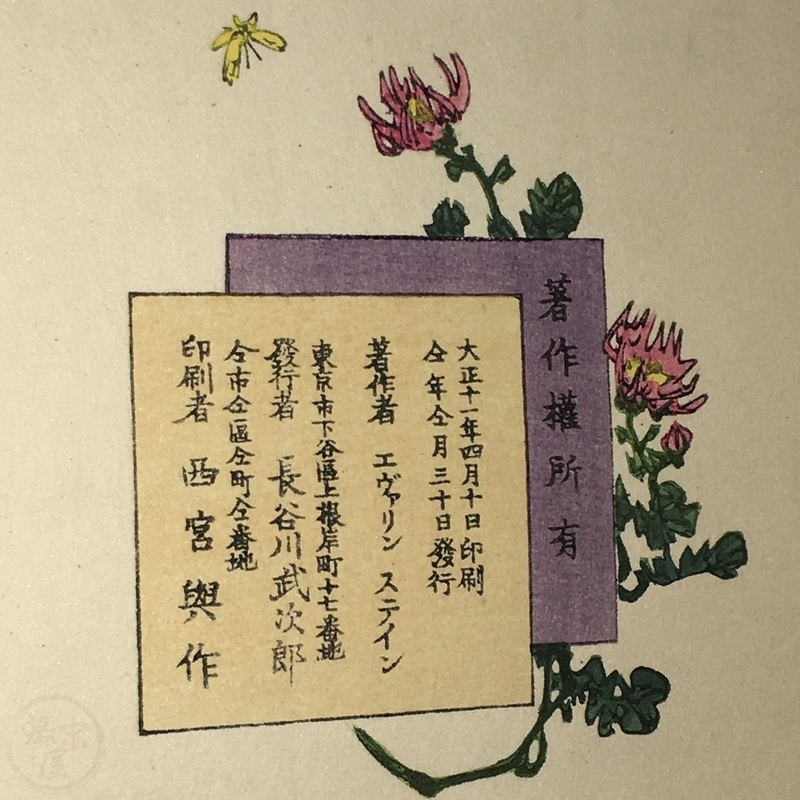 著作權所有
大正十一年四月十日印刷
仝年仝月三十日發行
著作者 エヴァリン ステイン
東京市下谷區上根岸町十七番地
發行者 長谷川武次郎
仝市仝區仝町仝番地
印刷者 西宮與作